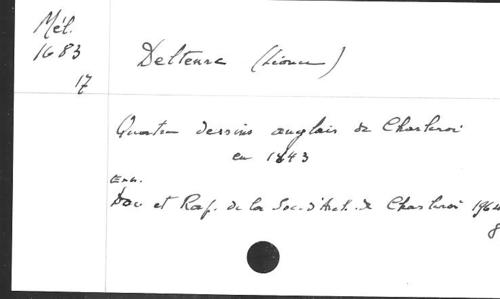 Mél.
1683
17
Delteure (Lionce)
Quatre dessins anglais de Charleroi
en 1843
Ext.
Doc et Rap. de la Soc. d'Arch. de Charleroi 1964
8